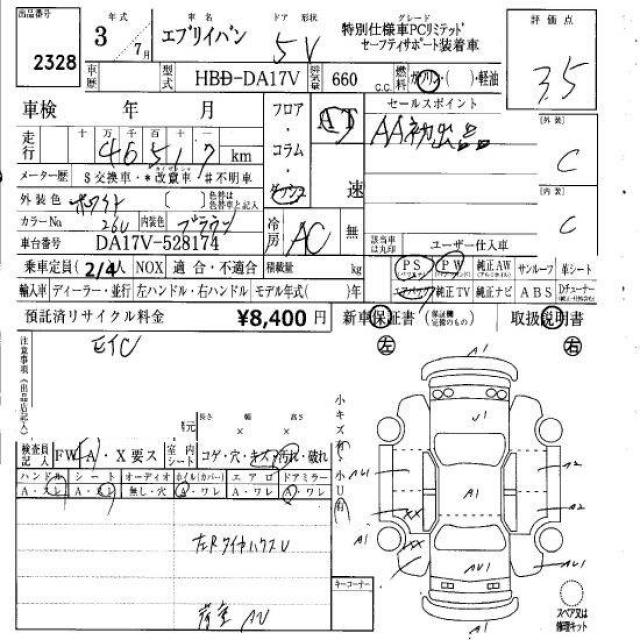 出品番号 年式 車名 ドア 形状 グレード 評価点
2328 3 7月 エブリイバン 5V 特別仕様車PCリミテッド セーフティサポート装着車 3.5
車歴 型式 HBD-DA17V 排気量 660 c.c. 燃料 ガソリン・( )・軽油
車検 年 月 フロア・コラム・ダッシュ AT 速 セールスポイント [外装] C
走行 十 万 千 百 十 一 46517 km AA初出品
メーター歴 $交換車・*改竄車・#不明車 [内装] C
外装色 ホワイト [ ] 色替は色替車と記入
カラーNo 26U 内装色 ブラウン 冷房 AC 無 該当車は丸印 ユーザー仕入車
車台番号 DA17V-528174
乗車定員 2/4人 NOX 適合・不適合 積載量 kg PS PW 純正AW サンルーフ 革シート
輸入車 ディーラー・並行 左ハンドル・右ハンドル モデル年式( )年 エアバック 純正TV 純正ナビ ABS Dチューナー
預託済リサイクル料金 ¥8,400円 新車保証書 取扱説明書
注意事項(出品店記入) ETC
左 右
A1
諸元 長さ × 幅 × 高さ
小キズ有・小U有
検査員記入 FW A・X要ス 室内シート コゲ・穴・キズ・汚れ・破れ
ハンドル シート オーディオ ホイル(カバー) エアロ ドアミラー
A・スレ A・スレ 無し・穴 A・ワレ A・ワレ A・ワレ
√1
AU1 A2
A1 A2
XX
A1 XX
AU1 AU1
A1
荷室 AU
キーコーナー
スペア又は修理キット